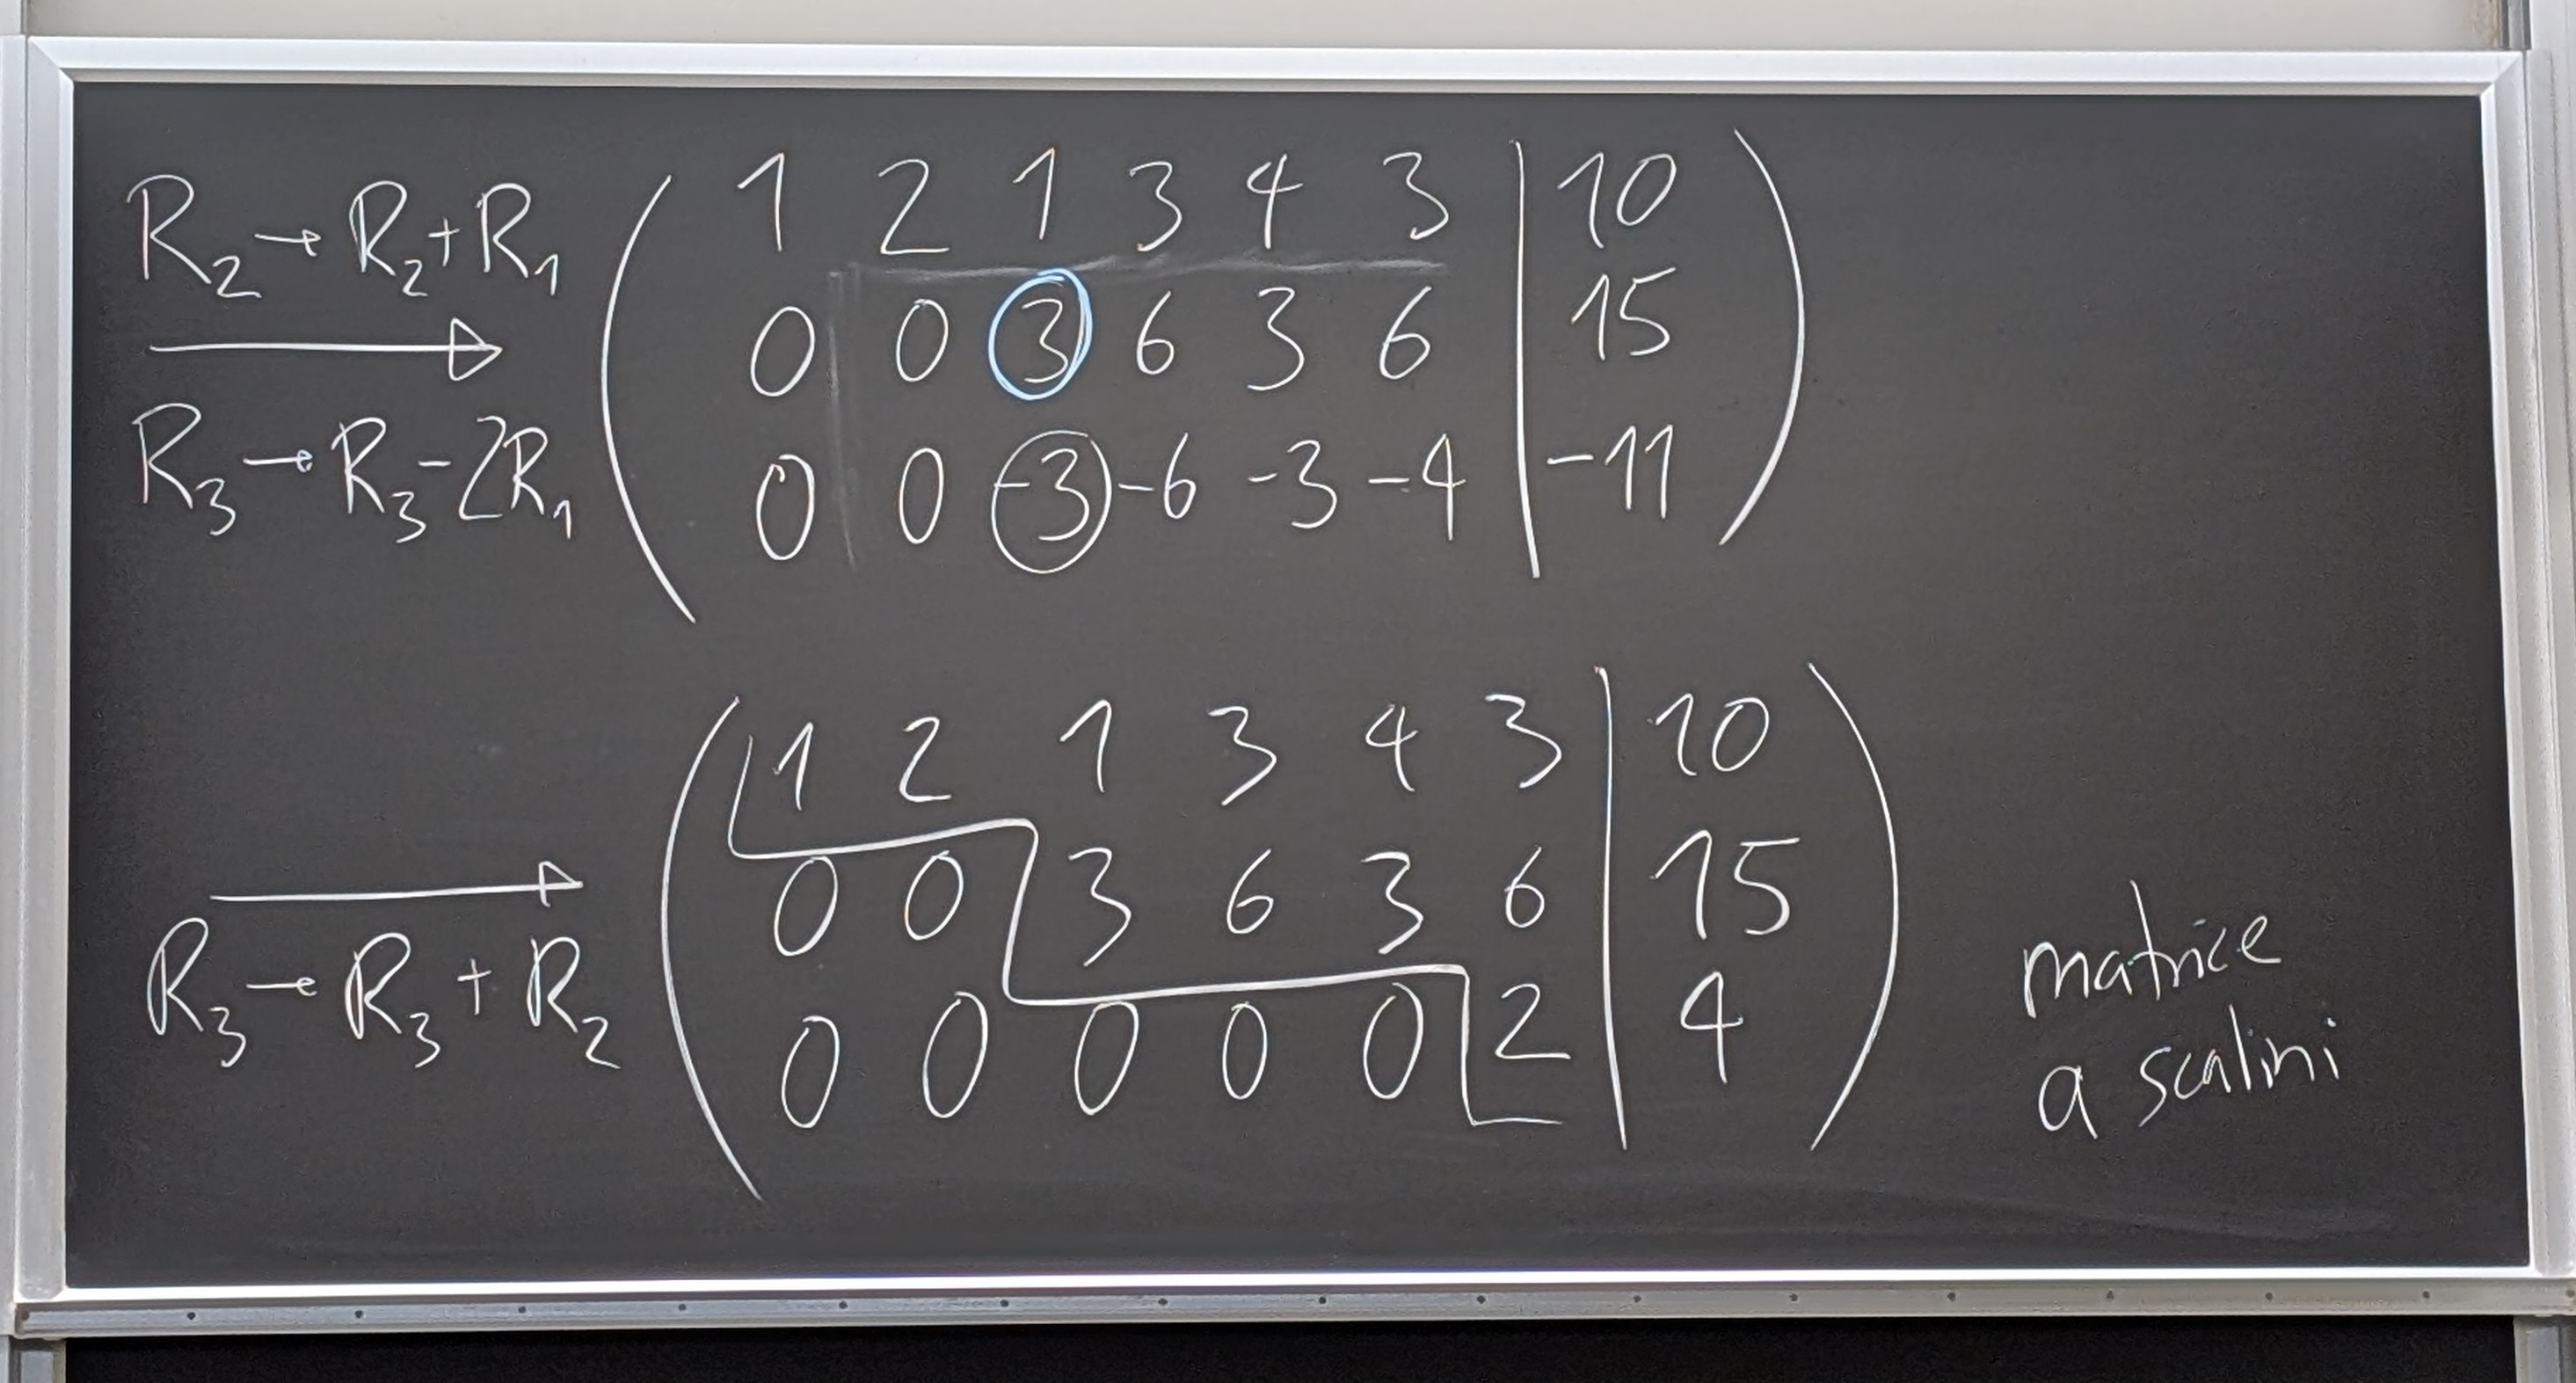 R₂ → R₂ + R₁
R₃ → R₃ - 2R₁
( 1 2 1 3 4 3 | 10 )
( 0 0 3 6 3 6 | 15 )
( 0 0 -3 -6 -3 -4 | -11 )
R₃ → R₃ + R₂
( 1 2 1 3 4 3 | 10 )
( 0 0 3 6 3 6 | 15 )
( 0 0 0 0 0 2 | 4 )
matrice
a scalini